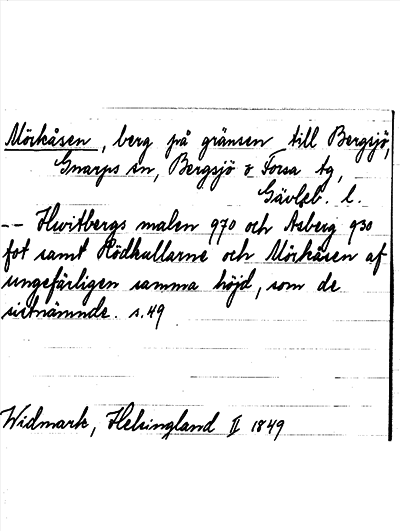 Mörkåsen, berg på gränsen till Bergsjö,
Gnarps sn, Bergsjö & Forsa tg,
Gävleb. l.
-- Hwitbergs malen 970 och Åsberg 930
fot samt Rödkullarne och Mörkåsen af
ungefärligen samma höjd, som de
sistnämnde. s. 49
Widmark, Helsingland II 1849